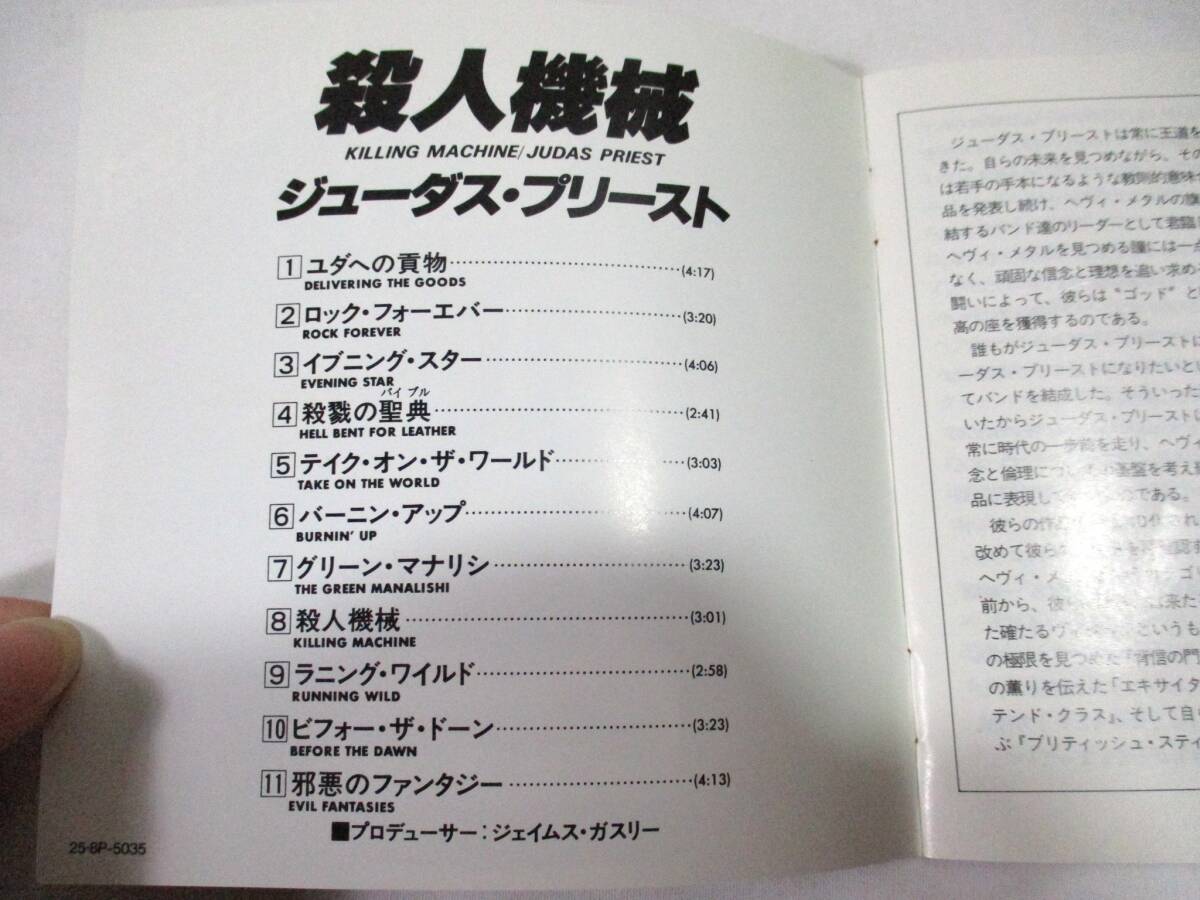 殺人機械
KILLING MACHINE/JUDAS PRIEST
ジューダス・プリースト
1 ユダへの貢物 (4:17)
DELIVERING THE GOODS
2 ロック・フォーエバー (3:20)
ROCK FOREVER
3 イブニング・スター (4:06)
EVENING STAR
バイブル
4 殺戮の聖典 (2:41)
HELL BENT FOR LEATHER
5 テイク・オン・ザ・ワールド (3:03)
TAKE ON THE WORLD
6 バーニン・アップ (4:07)
BURNIN' UP
7 グリーン・マナリシ (3:23)
THE GREEN MANALISHI
8 殺人機械 (3:01)
KILLING MACHINE
9 ラニング・ワイルド (2:58)
RUNNING WILD
10 ビフォー・ザ・ドーン (3:23)
BEFORE THE DAWN
11 邪悪のファンタジー (4:13)
EVIL FANTASIES
■プロデューサー:ジェイムス・ガスリー
25・8P-5035
ジューダス・プリーストは常に王道を
きた。自らの未来を見つめながら、その
は若手の手本になるような教則的意味
品を発表し続け、ヘヴィ・メタルの旗
結するバンド達のリーダーとして君臨
ヘヴィ・メタルを見つめる瞳には一点
なく、頑固な信念と理想を追い求め
闘いによって、彼らは"ゴッド"と
高の座を獲得するのである。
誰もがジューダス・プリーストに
ーダス・プリーストになりたいとい
てバンドを結成した。そういった
いたからジューダス・プリーストに
常に時代の一歩前を走り、ヘヴ
念と倫理につい 基盤を考え
品に表現して のである。
彼らの作 化され
改めて彼ら
ヘヴィ・メ
前から、彼 来た
た確たるヴィ というも
の極限を見つめた『背信の門
の薫りを伝えた『エキサイタ
テンド・クラス』、そして自
ぶ『ブリティッシュ・スティ